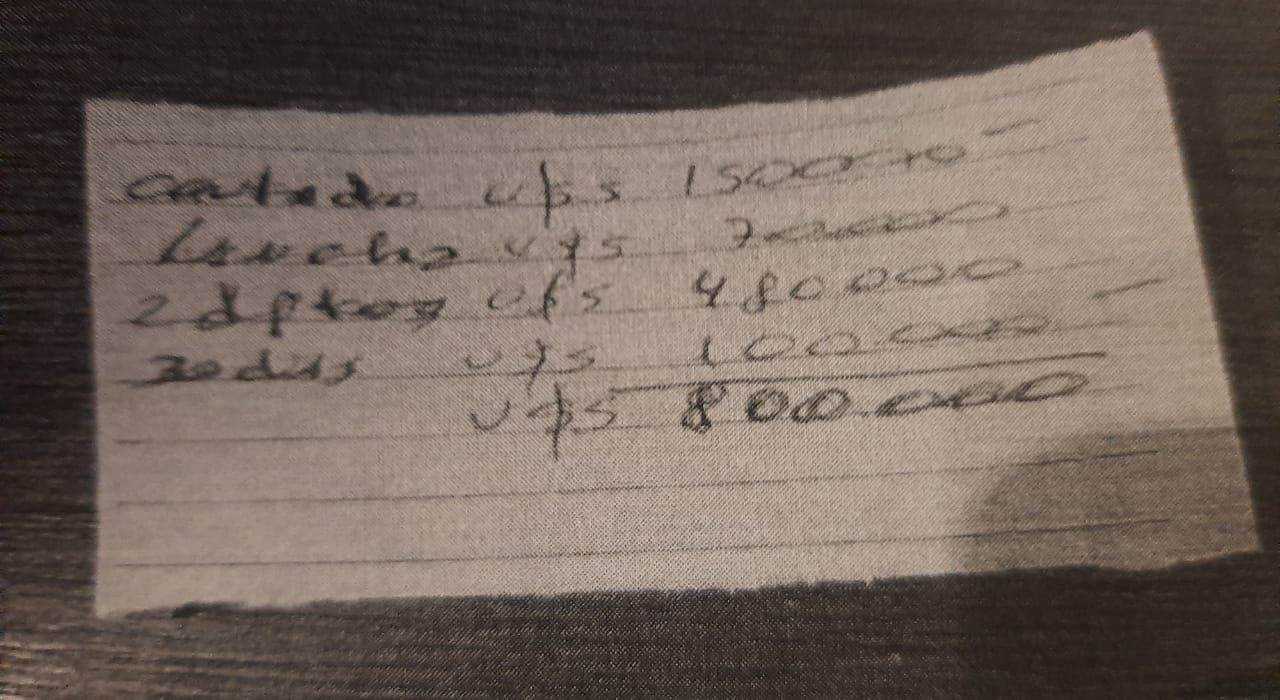 contado u$s 150000 -
Lancha u$s 70.000
2 dptos u$s 480000
30 dias u$s 100.000 -
u$s 800.000